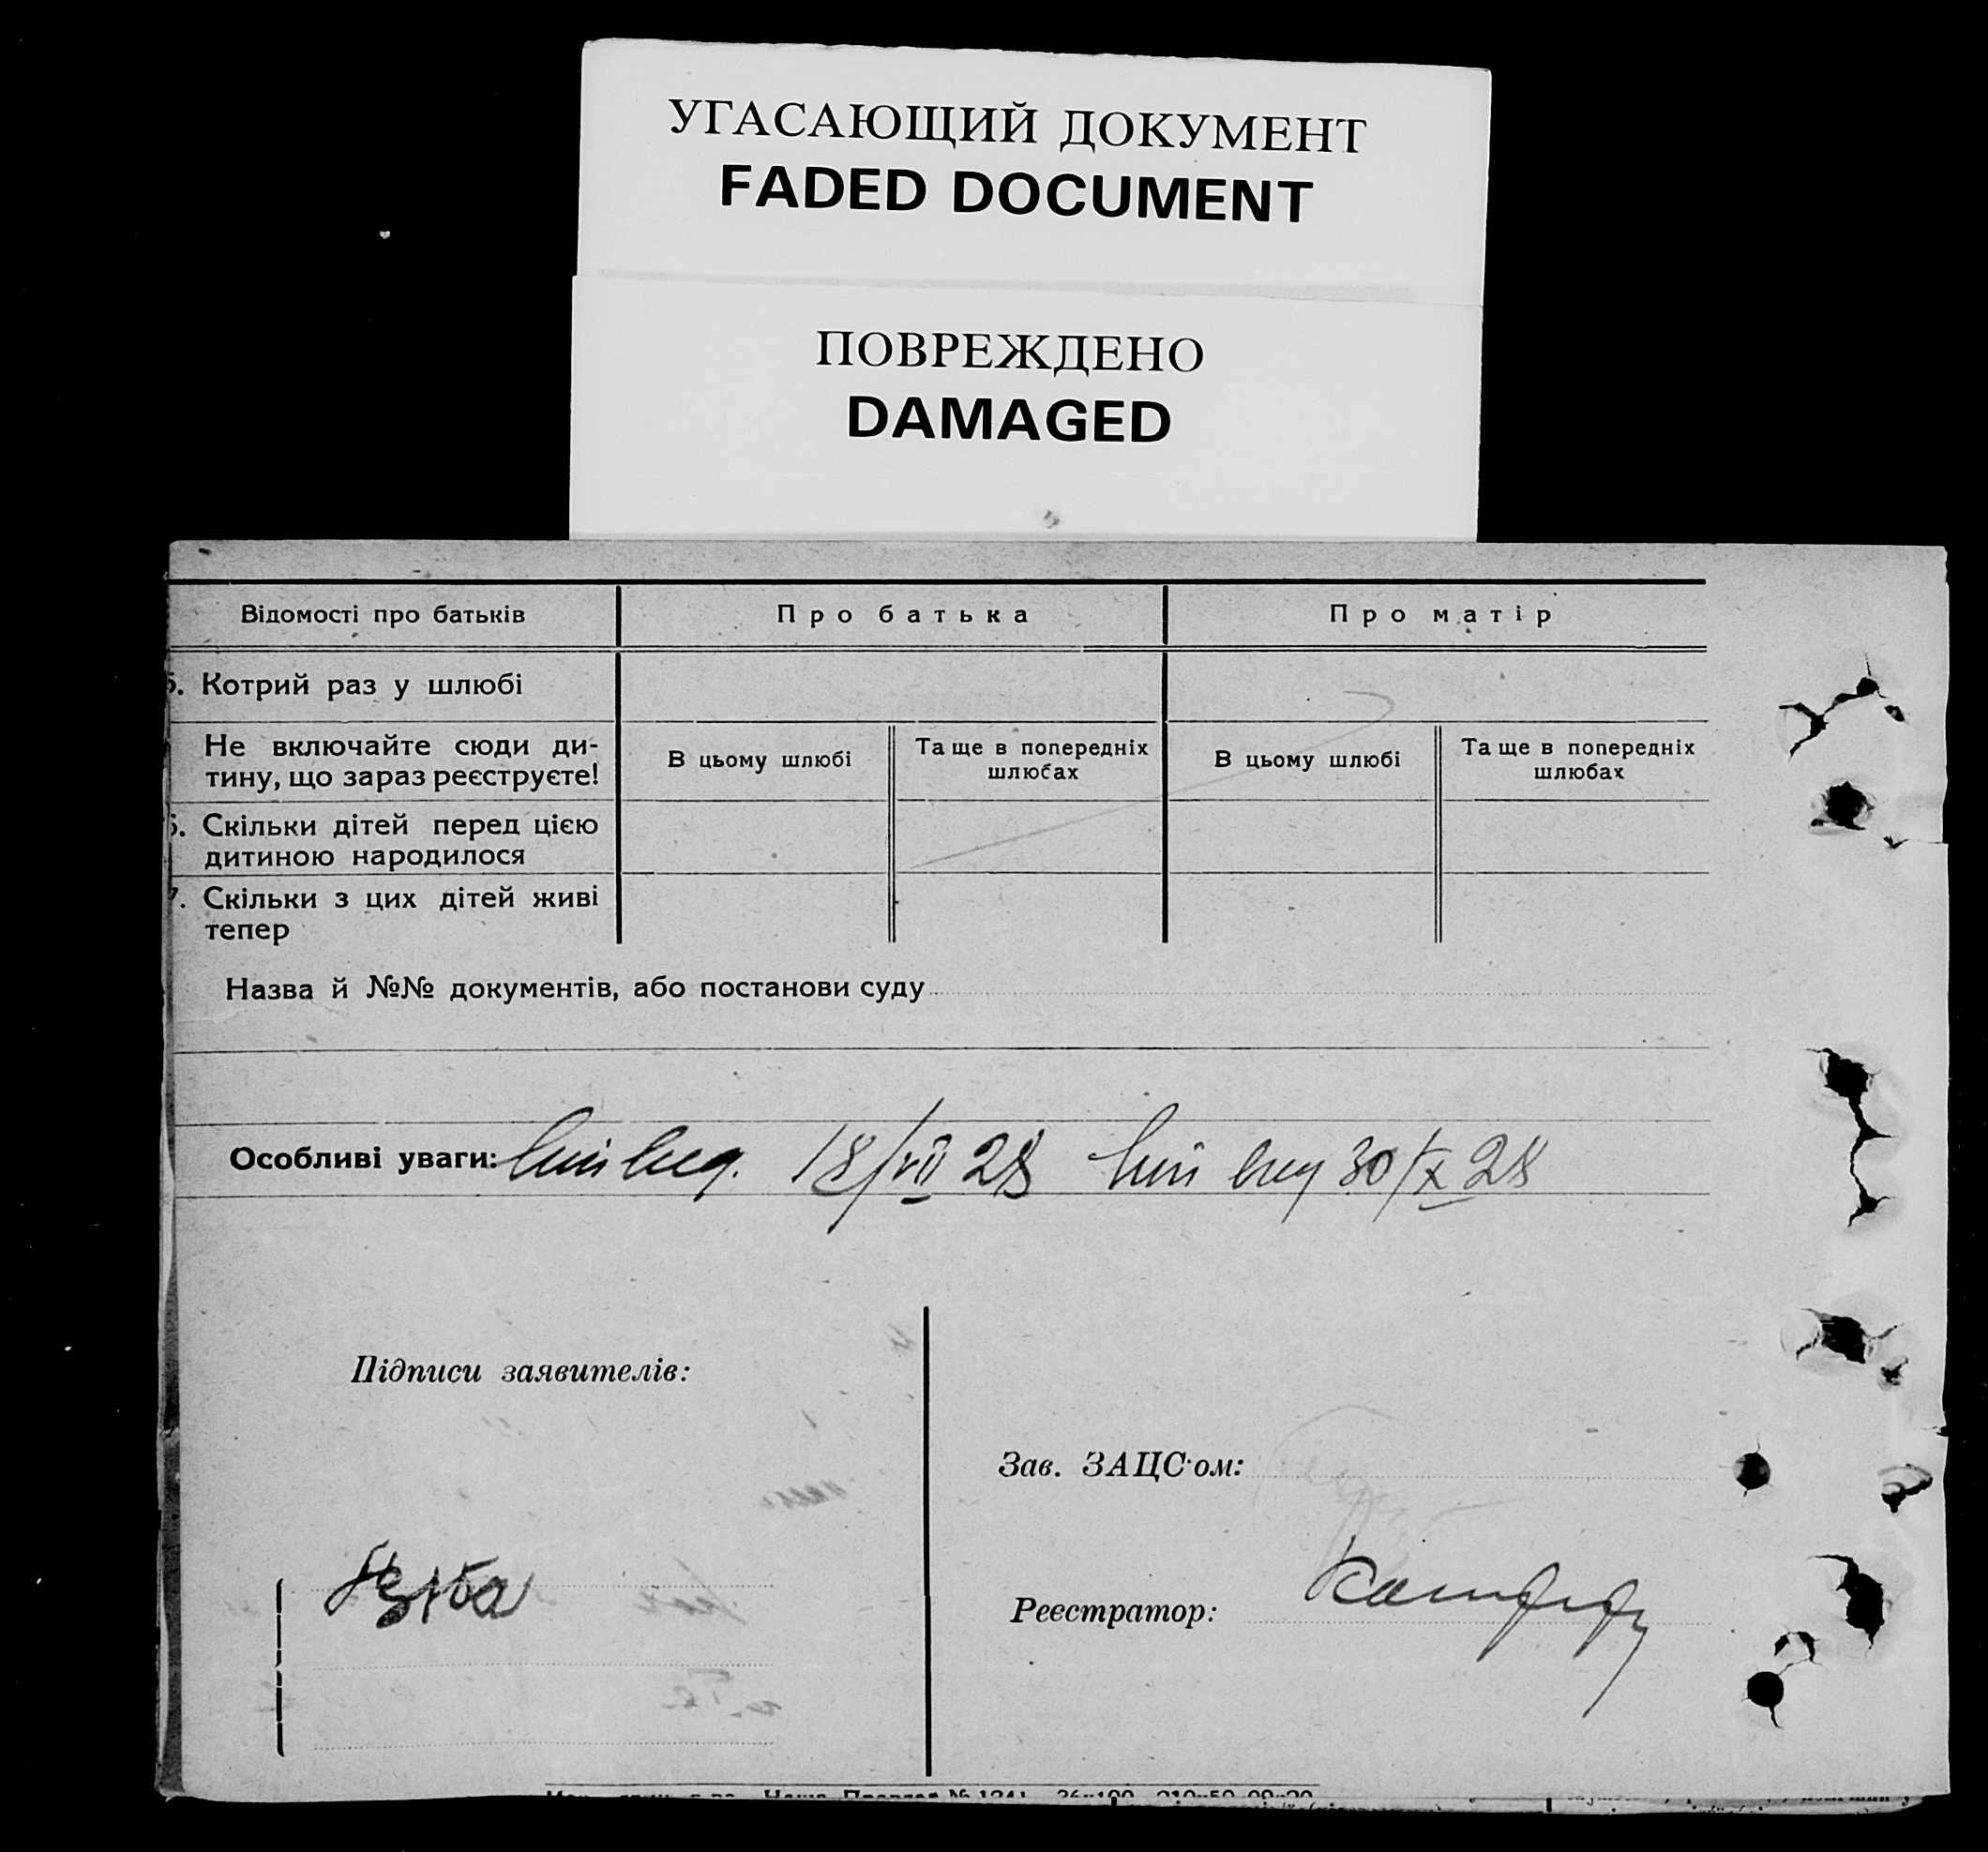 УГАСАЮЩИЙ ДОКУМЕНТ
FADED DOCUMENT
ПОВРЕЖДЕНО
DAMAGED
Відомості про батьків Про батька Про матір
5. Котрий раз у шлюбі
Не включайте сюди ди-
тину, що зараз реєструєте!
В цьому шлюбі
Та ще в попередніх
шлюбах
В цьому шлюбі
Та ще в попередніх
шлюбах
6. Скільки дітей перед цією
дитиною народилося
7. Скільки з цих дітей живі
тепер
Назва й №№ документів, або постанови суду
Особливі уваги: 18/VII 28 30/X 28
Підписи заявителів:
Зав. ЗАЦС'ом:
Реєстратор: